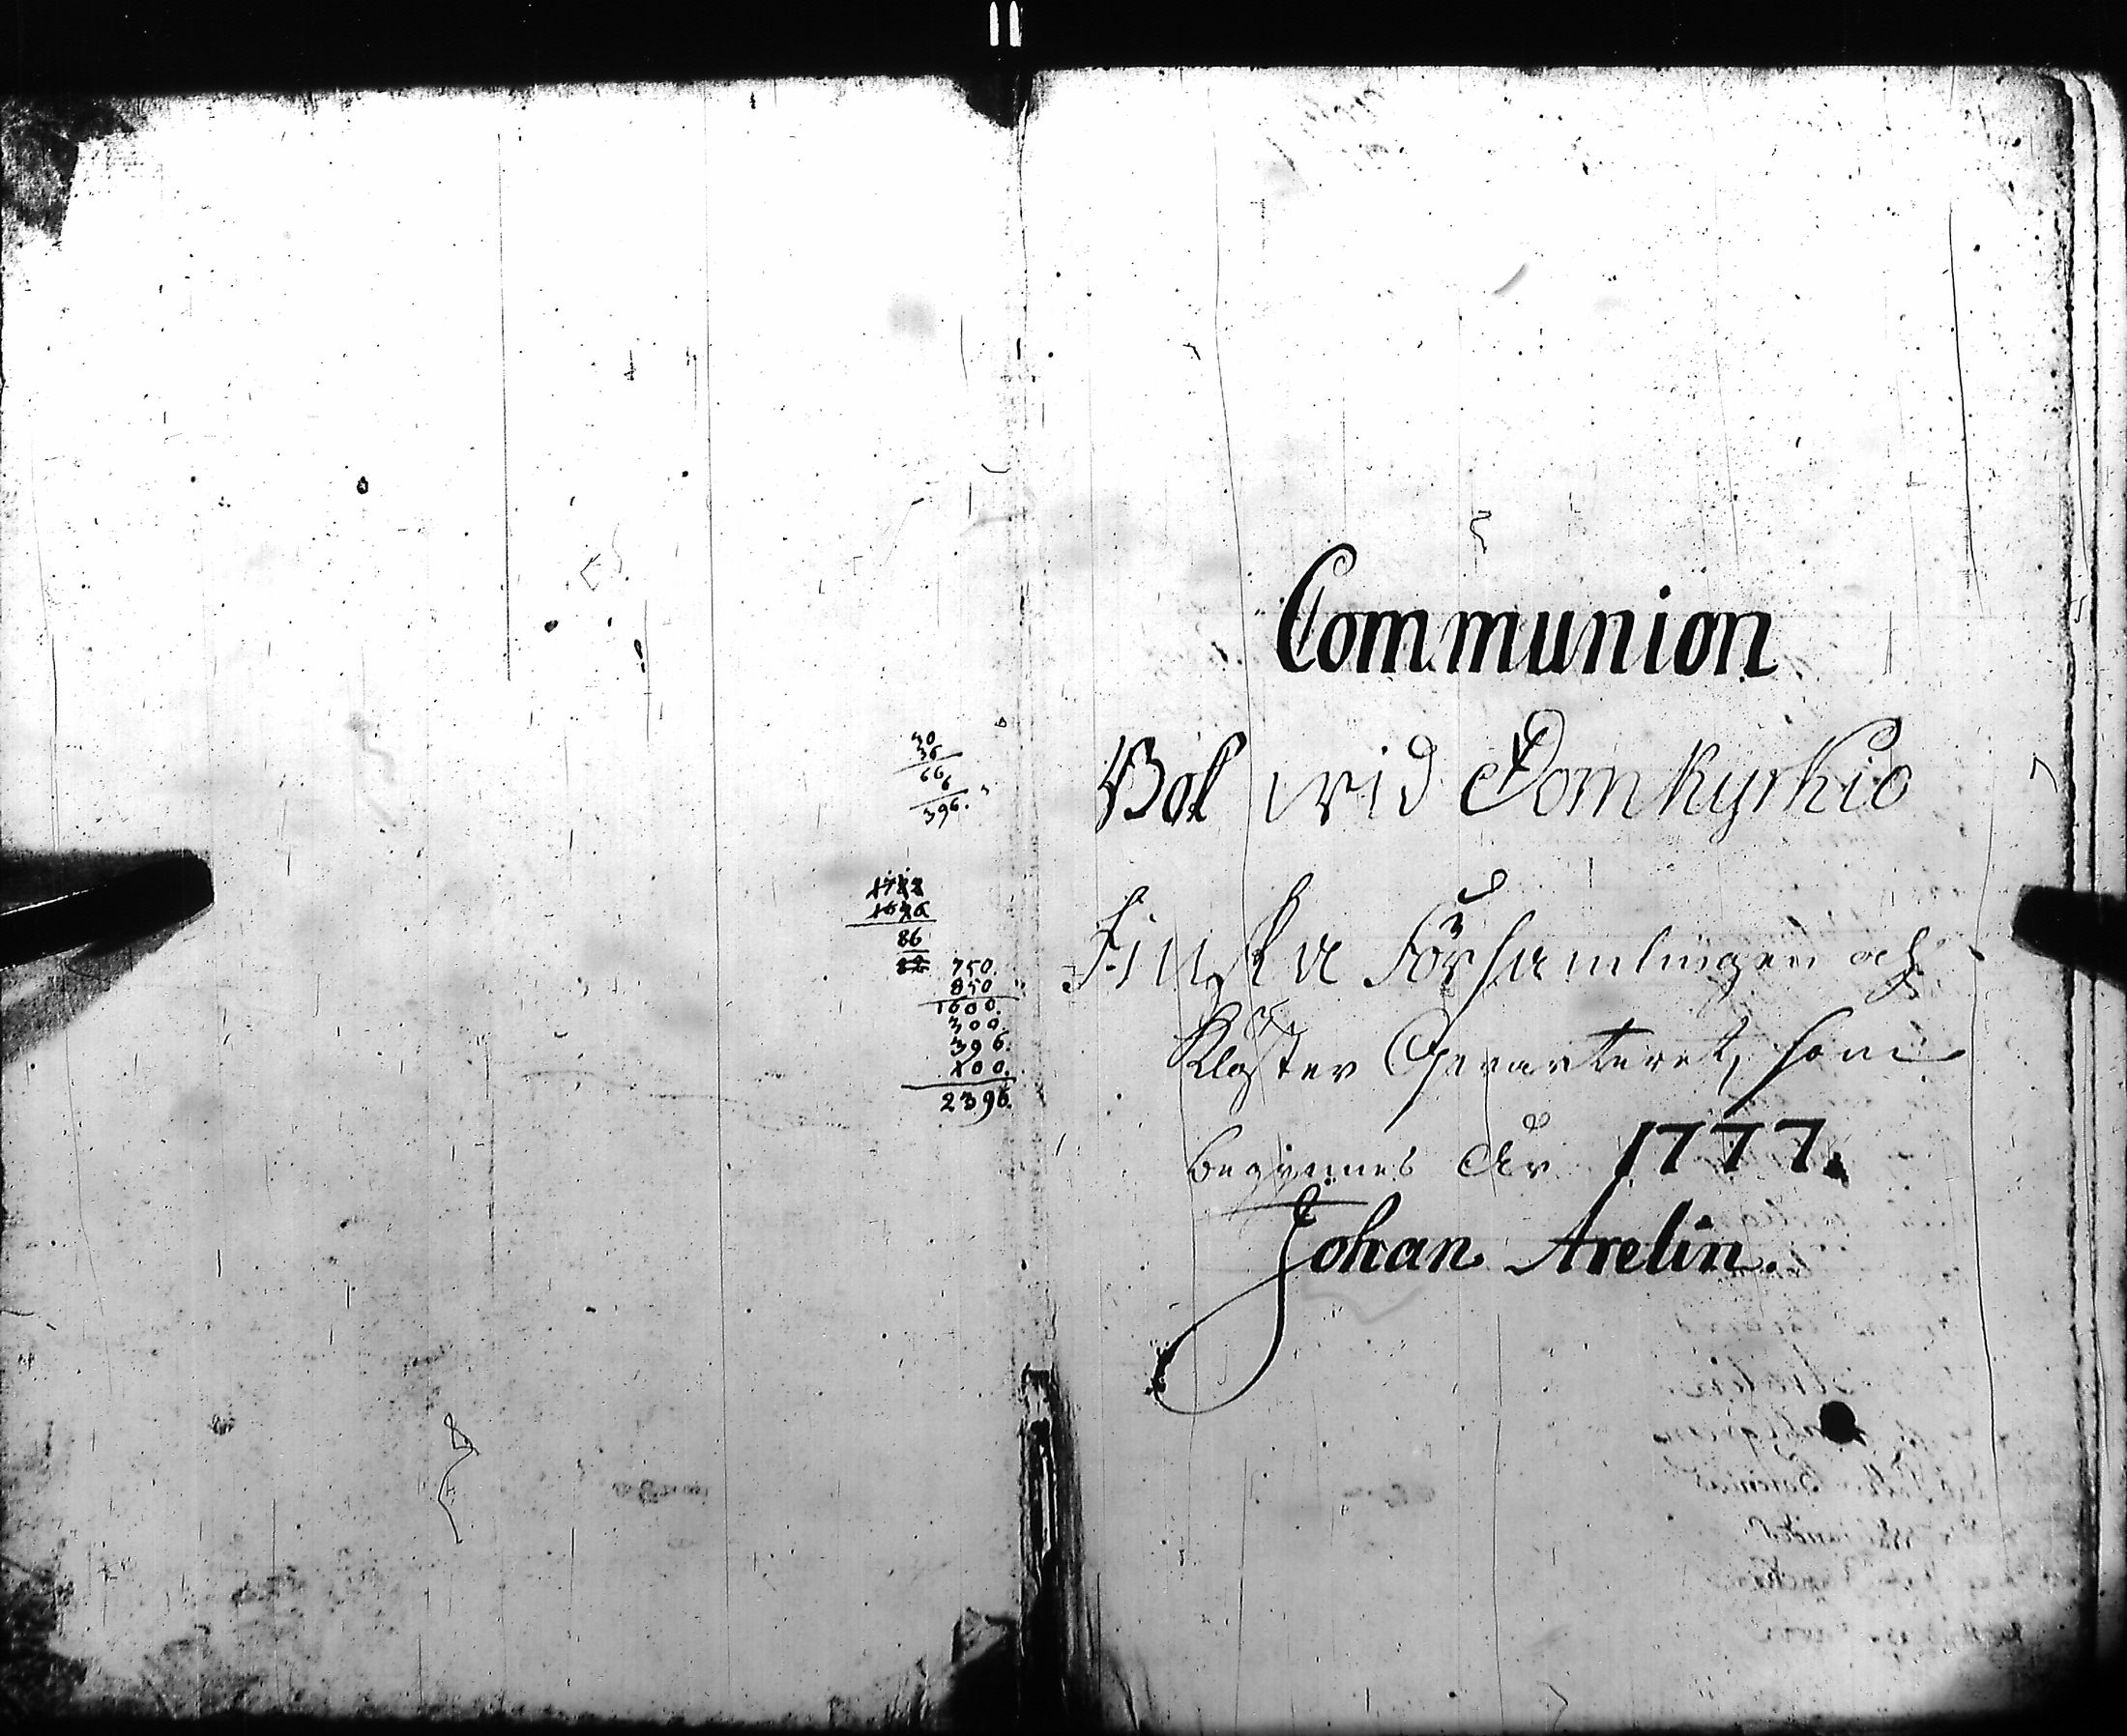 30
36
66
6
396.
1722
1636
86
750.
850
1600.
300.
396.
100.
2396.
Communion
Bok wid Domkyrkio
Finska Församlingen och
Kloster Qvarteret, som
begynnes År 1777.
Johan Arelin.